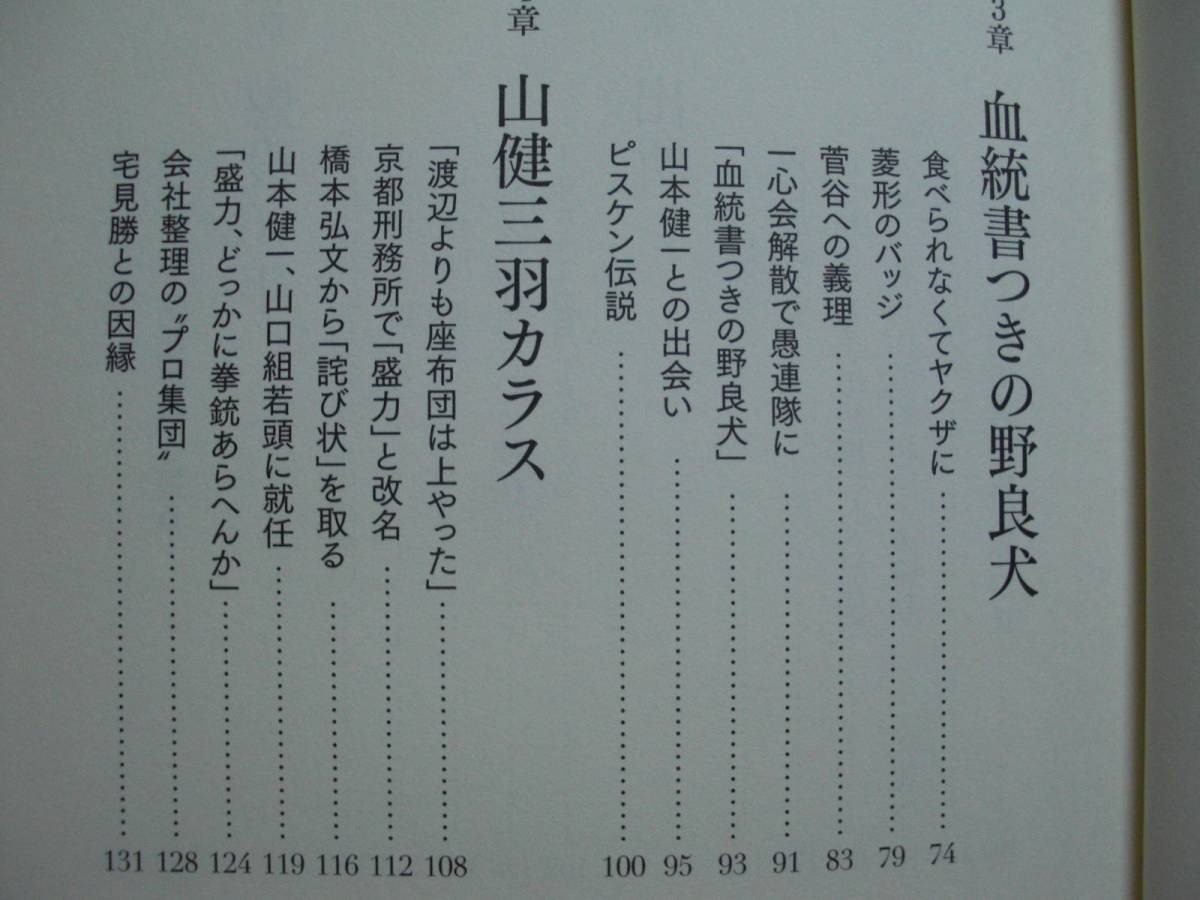 3章 血統書つきの野良犬
食べられなくてヤクザに……………………74
菱形のバッジ……………………79
菅谷への義理……………………83
一心会解散で愚連隊に……………………91
「血統書つきの野良犬」……………………93
山本健一との出会い……………………95
ピスケン伝説……………………100
章 山健三羽カラス
「渡辺よりも座布団は上やった」……………………108
京都刑務所で「盛力」と改名……………………112
橋本弘文から「詫び状」を取る……………………116
山本健一、山口組若頭に就任……………………119
「盛力、どっかに拳銃あらへんか」……………………124
会社整理の〝プロ集団〟……………………128
宅見勝との因縁……………………131